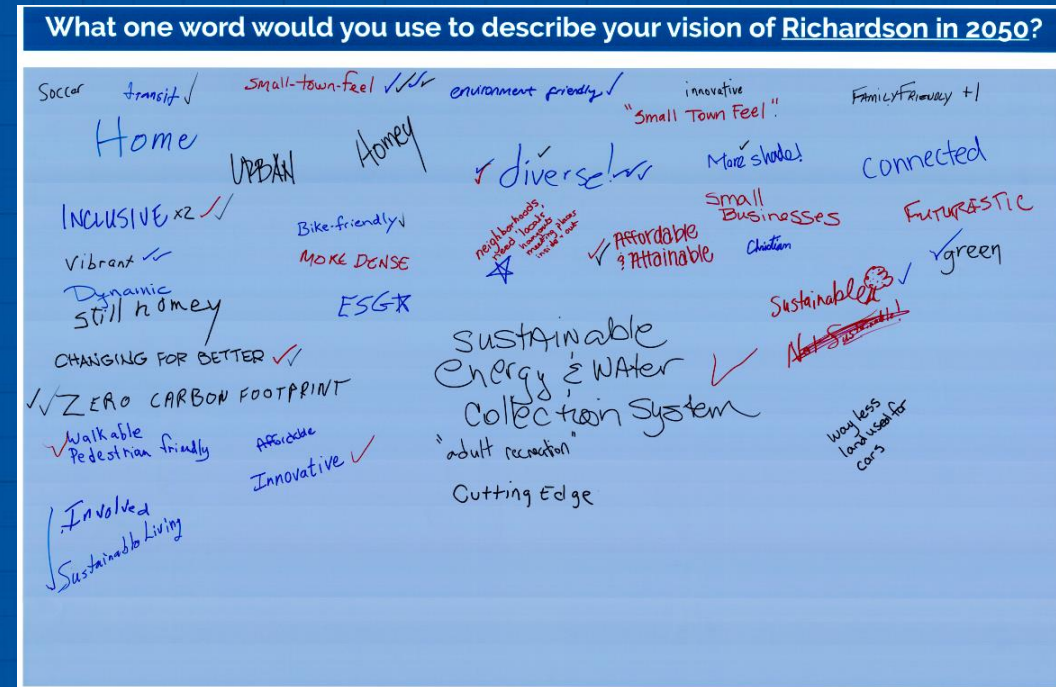 What one word would you use to describe your vision of Richardson in 2050?
Soccer
transit ✓
Small-town-feel ✓✓✓
environment friendly ✓
innovative
"Small Town Feel"!
FAMILY FRIENDLY +1
Home
URBAN
Homey
✓ diverse! ✓✓
More shade!
Connected
INCLUSIVE x2 ✓✓
Bike-friendly ✓
neighborhoods,
need 'locals'
hangouts
meeting places
inside + out
✓ Affordable
& Attainable
Small
Businesses
Christian
FUTURISTIC
✓ green
Vibrant ✓✓
MORE DENSE
Dynamic
still homey
ESG
Sustainable
✓
Not Sustainable!
CHANGING FOR BETTER ✓✓
Sustainable
Energy & Water
Collection System
✓
✓✓ ZERO CARBON FOOTPRINT
✓ Walkable
Pedestrian friendly
Affordable
Innovative ✓
"adult recreation"
Cutting Edge
way less
land used for
cars
Involved
Sustainable Living